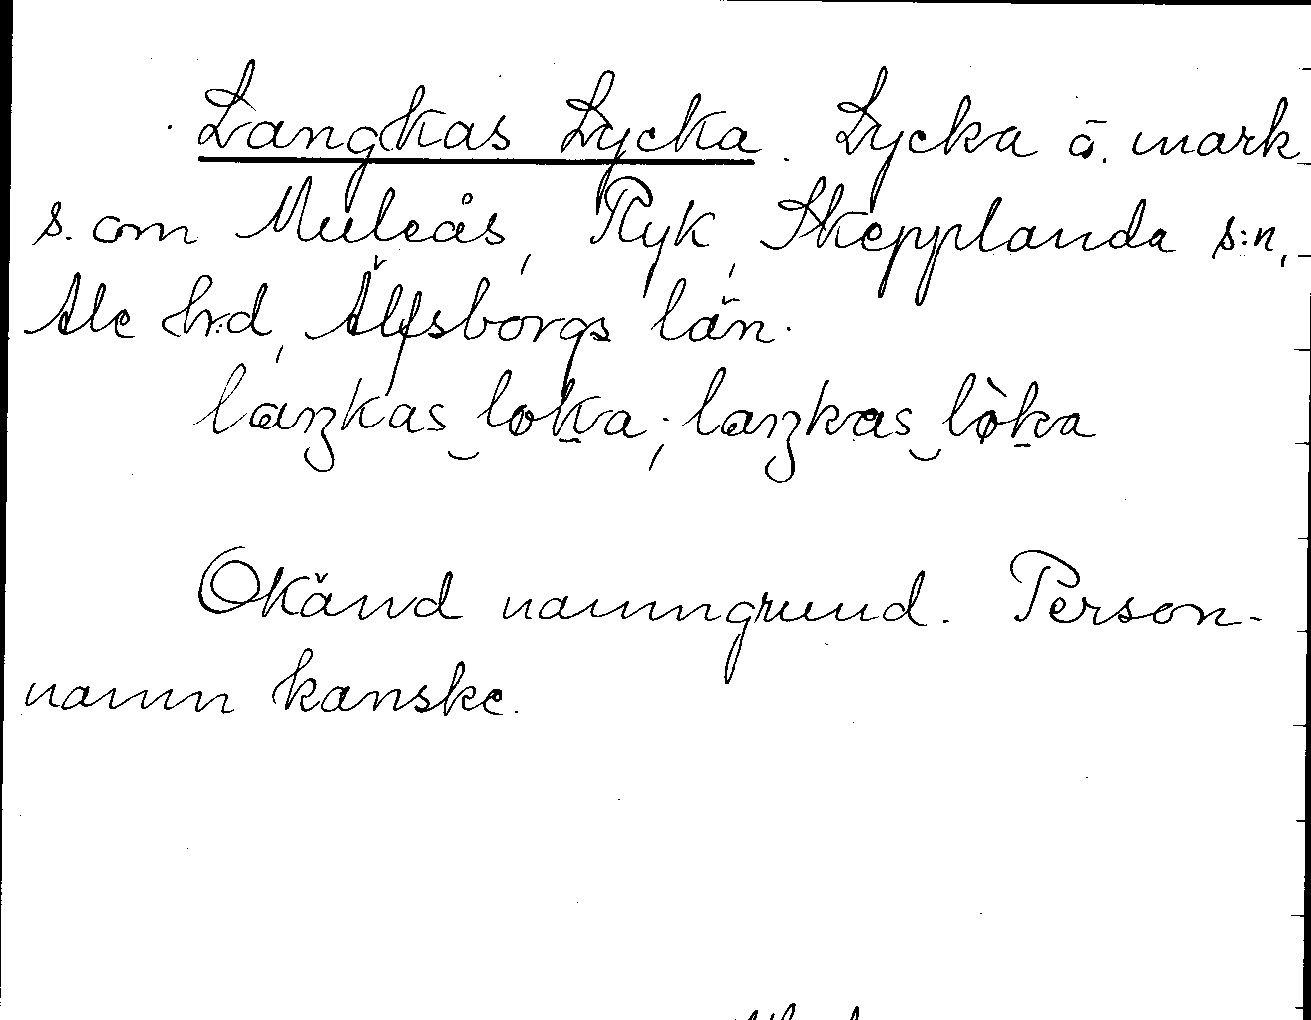 Langkas Lycka. Lycka å mark
s. om Muleås, Ryk, Skepplanda s:n,
Ale h:d, Älfsborgs län.
laŋkas‿løka; laŋkas‿lòka
Okänd namngrund. Person-
namn kanske.